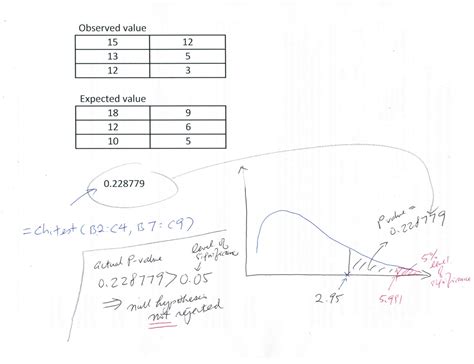 Observed value
15 12
13 5
12 3
Expected value
18 9
12 6
10 5
0.228779
=chitest(B2:C4, B7:C9)
Actual P-value
level of
significance
0.228779 > 0.05
⇒ null hypothesis
not rejected
P value =
0.228779
5%
level
of
significance
2.95
5.991